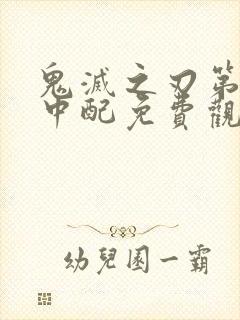 鬼滅之刃第
中配免費觀
幼兒園一霸